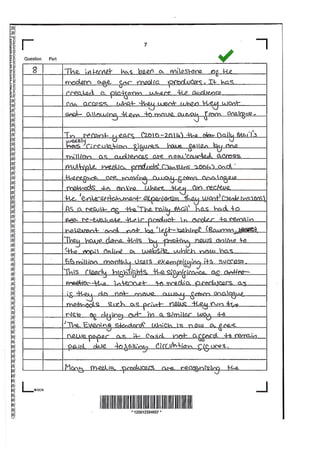 7
Question Part
8 The internet has been a milestone of the
modern age for media producers. It has
created a platform where the audience
can access what they want when they want
and allowing them to move away from analogue.
In recent years (2010-2016) the Daily Mail's
weekly
has circulation figures have fallen by one
million as audiences are now 'courted across
multiple media products' ( 2006) and
therefore are moving away from analogue
methods to online where they can receive
the 'entertainment experiences they want'
As a result of the 'The Daily Mail' has had to
re-evaluate their product in order to remain
relevant and not be 'left behind'
They have done this by posting news online to
the mail online a website which now has
million monthly users exemplifying its success.
This clearly highlights the significance of online
media the internet to media producers as
if they do not move away from analogue
methods such as print news they run the
risk of dying out in a similar way to
'The Evening Standard' which is now a free
newspaper as it could not afford to remain
paid due to falling circulation figures.
Many media producers are recognising the